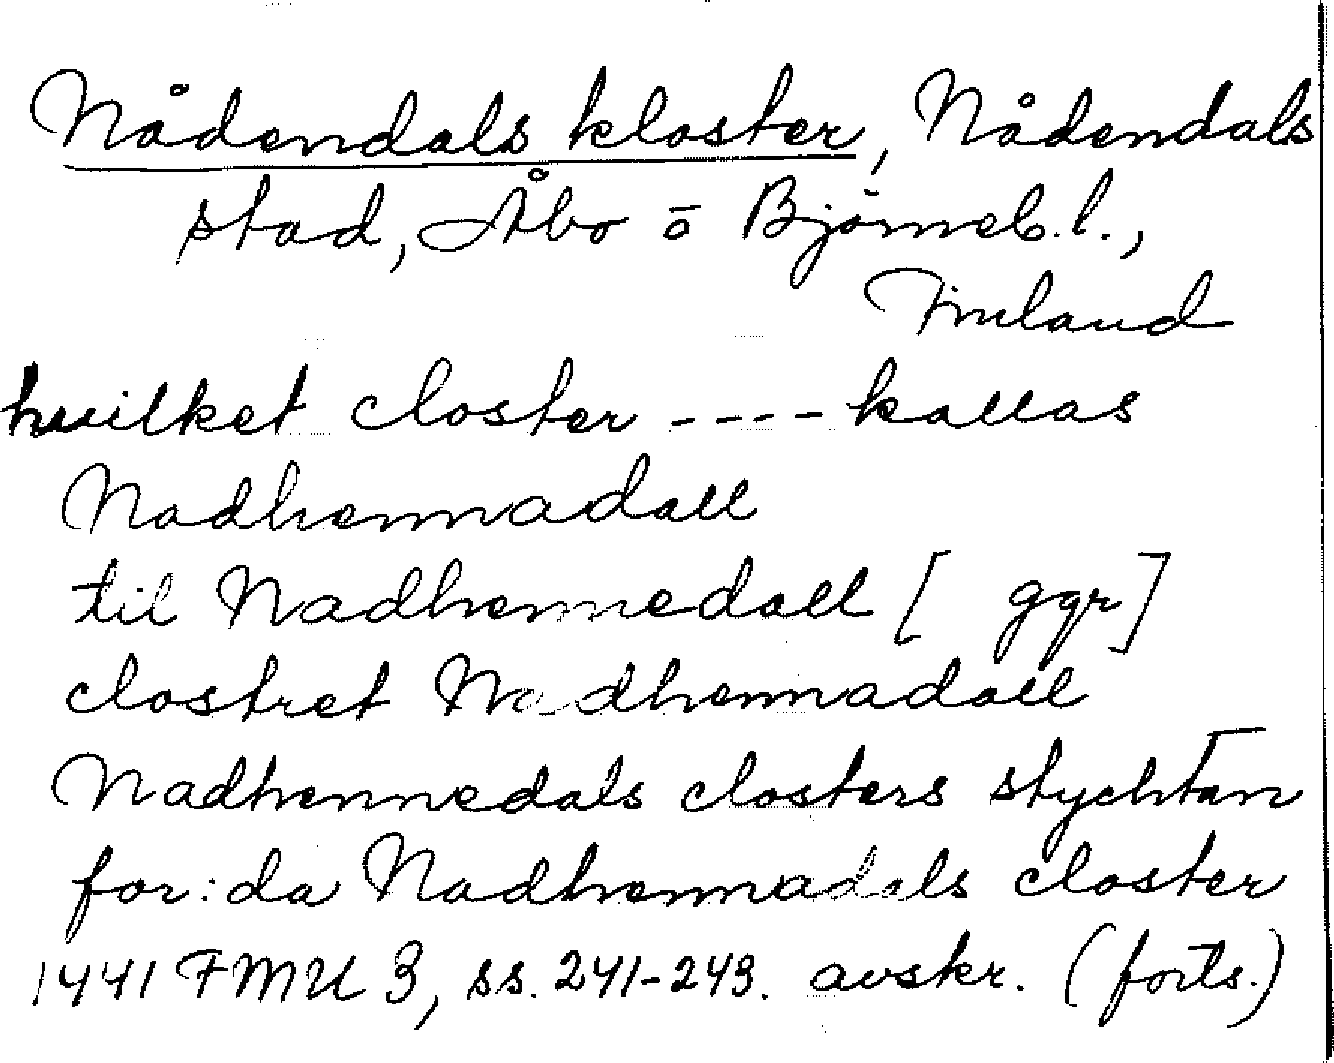 Nådendals kloster, Nådendals
stad, Åbo o Björneb. l.,
Finland
hvilket closter ---- kallas
Nadhennadall
til Nadhennedall [ ggr]
clostret Nadhennadall
Nadhennedals closters stychtan
for:da Nadhennadals closter
1441 FMU 3, ss. 241-243. avskr. (forts.)